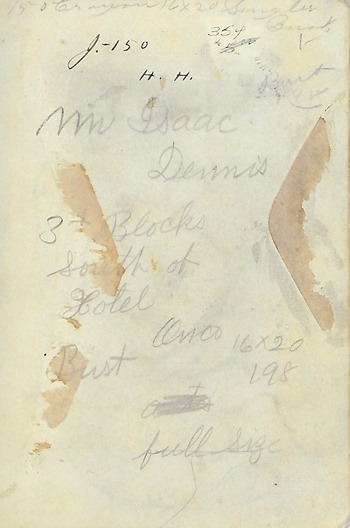 150 Crayon 16x20 Single
Bust
J.-150
354
H. H.
Bust
Mr Isaac
Dennis
3+ Blocks
South of
Hotel
16x20
Bust
198
full size